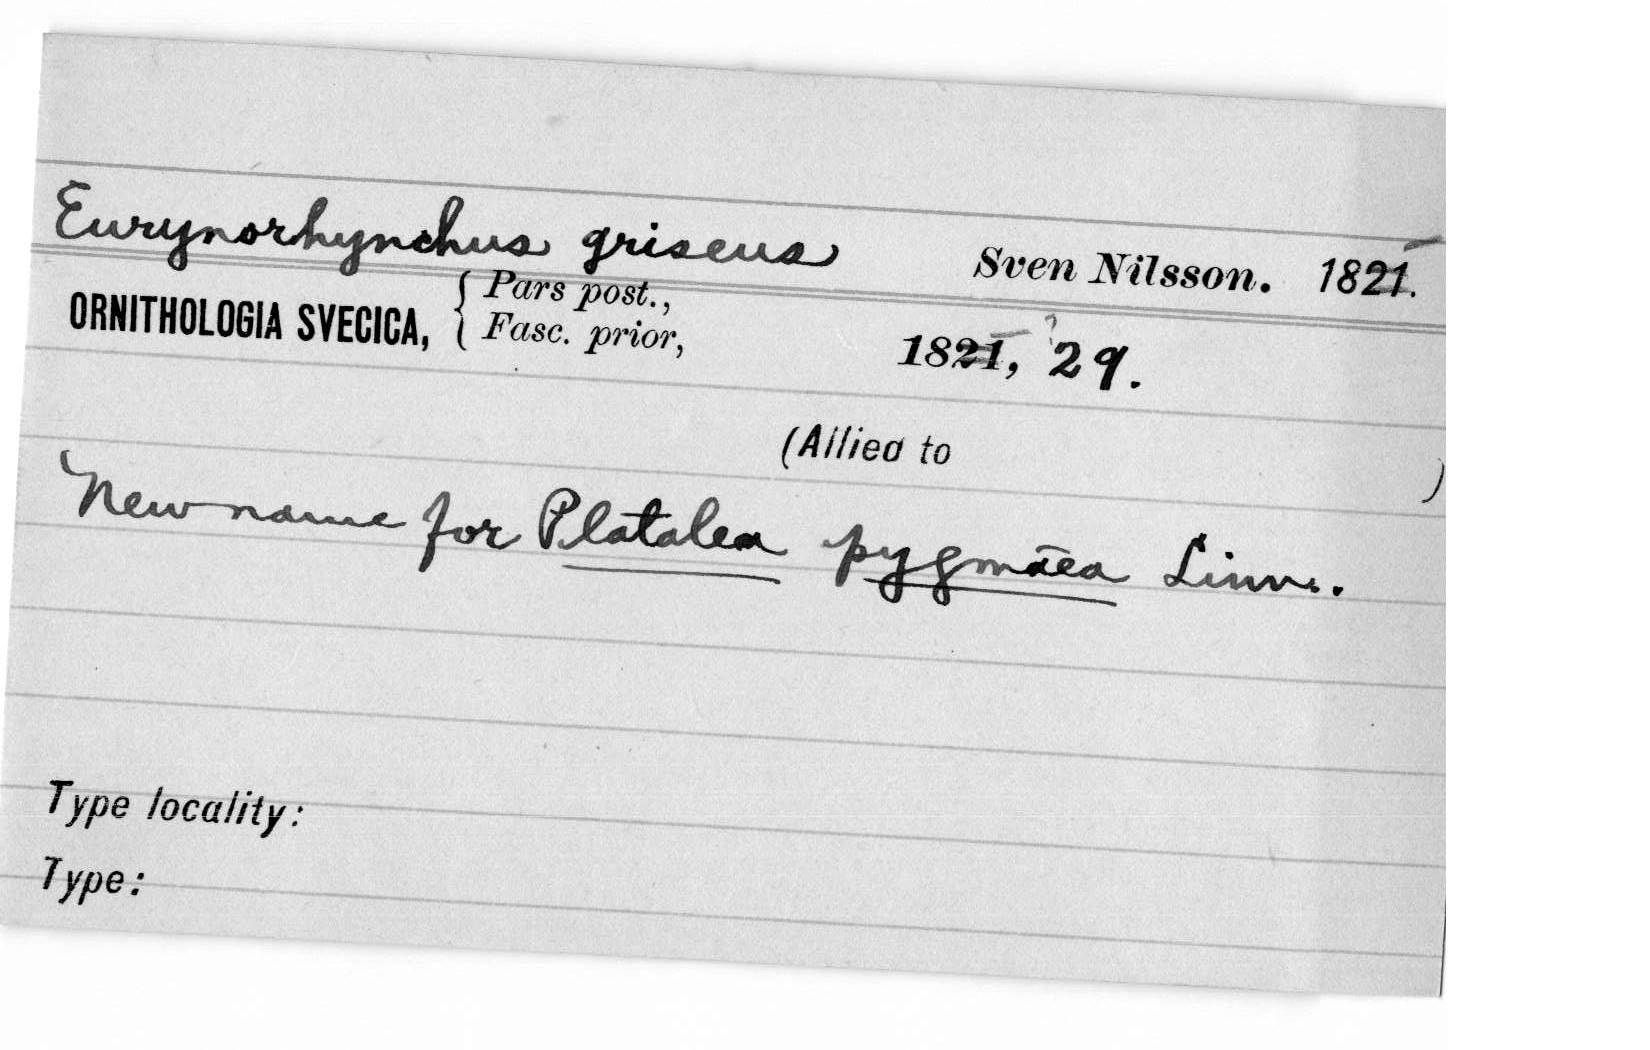 Eurynorhynchus griseus Sven Nilsson. 1821.
ORNITHOLOGIA SVECICA, { Pars post.,
Fasc. prior, 1821, 29.
(Allied to )
New name for Platalea pygmāea Linn.
Type locality:
Type: